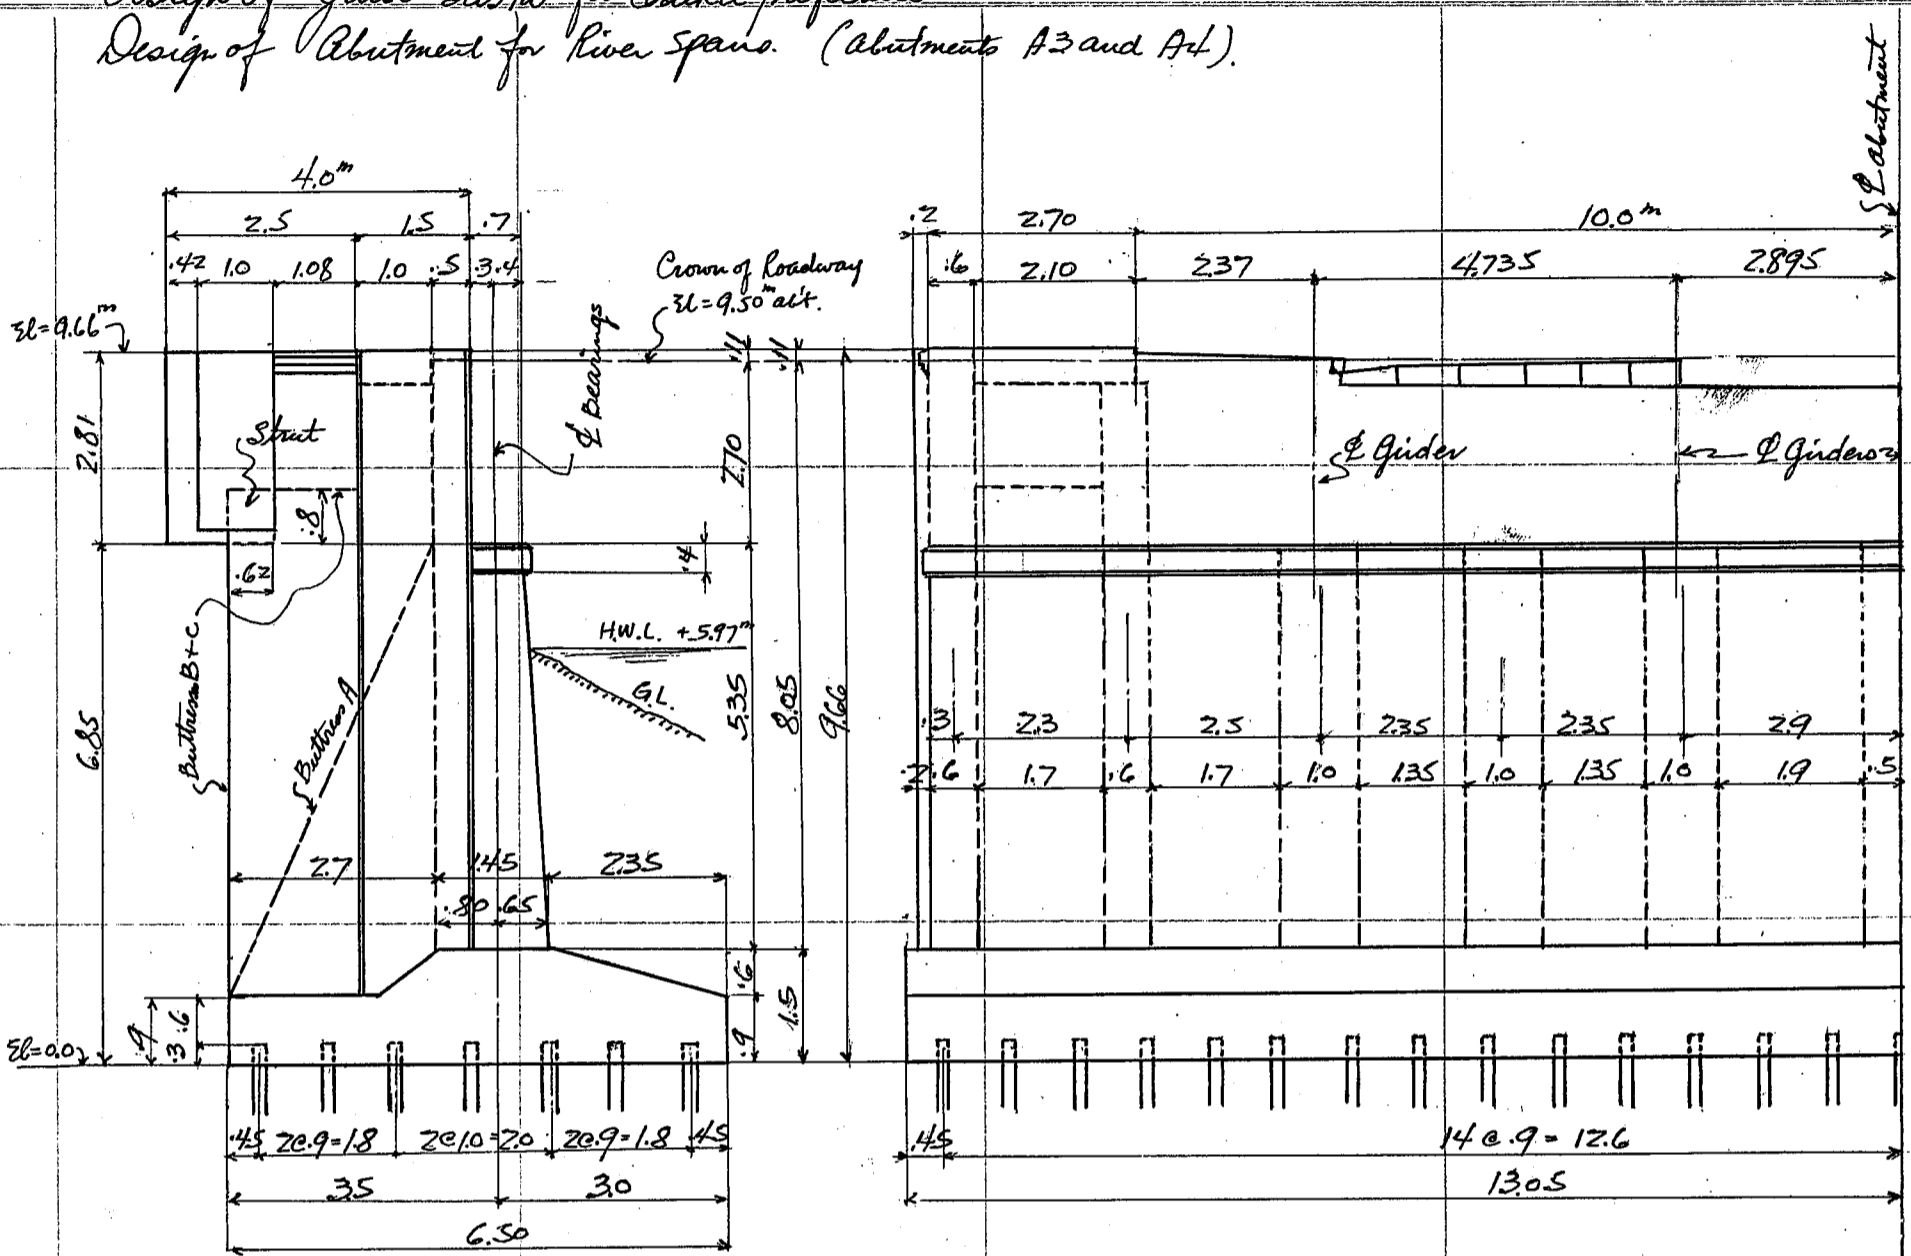 Design of Abutment for River Spans. (Abutments A3 and A4).
℄ abutment
4.0ᵐ
2.5 1.5 .7
.42 1.0 1.08 1.0 .5 .3 .4
Crown of Roadway
El=9.50ᵐ at ℄.
El=9.66ᵐ
℄ Bearings
Strut
2.81
.8
.62
2.70
.11 .11
.4
H.W.L. +5.97ᵐ
G.L.
Buttress B+C
Buttress A
6.85
5.35
8.05
9.66
2.7 1.45 2.35
.80 .65
.6
.9
1.5
.9
.3 .6
El=0.0
.45 2@.9=1.8 2@1.0=2.0 2@.9=1.8 .45
3.5 3.0
6.50
.2 2.70 10.0ᵐ
.6 2.10 2.37 4.735 2.895
℄ Girder
℄ Girders
.3 2.3 2.5 2.35 2.35 2.9
.2 .6 1.7 .6 1.7 1.0 1.35 1.0 1.35 1.0 1.9 .5
.45 14@.9=12.6
13.05